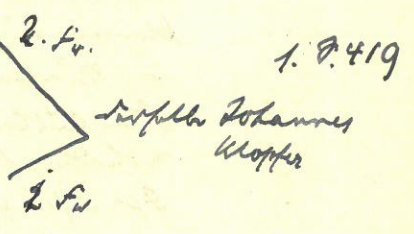 2. Fr.
1. J. 419
derselbe Johannes
Klopfer
1. Fr